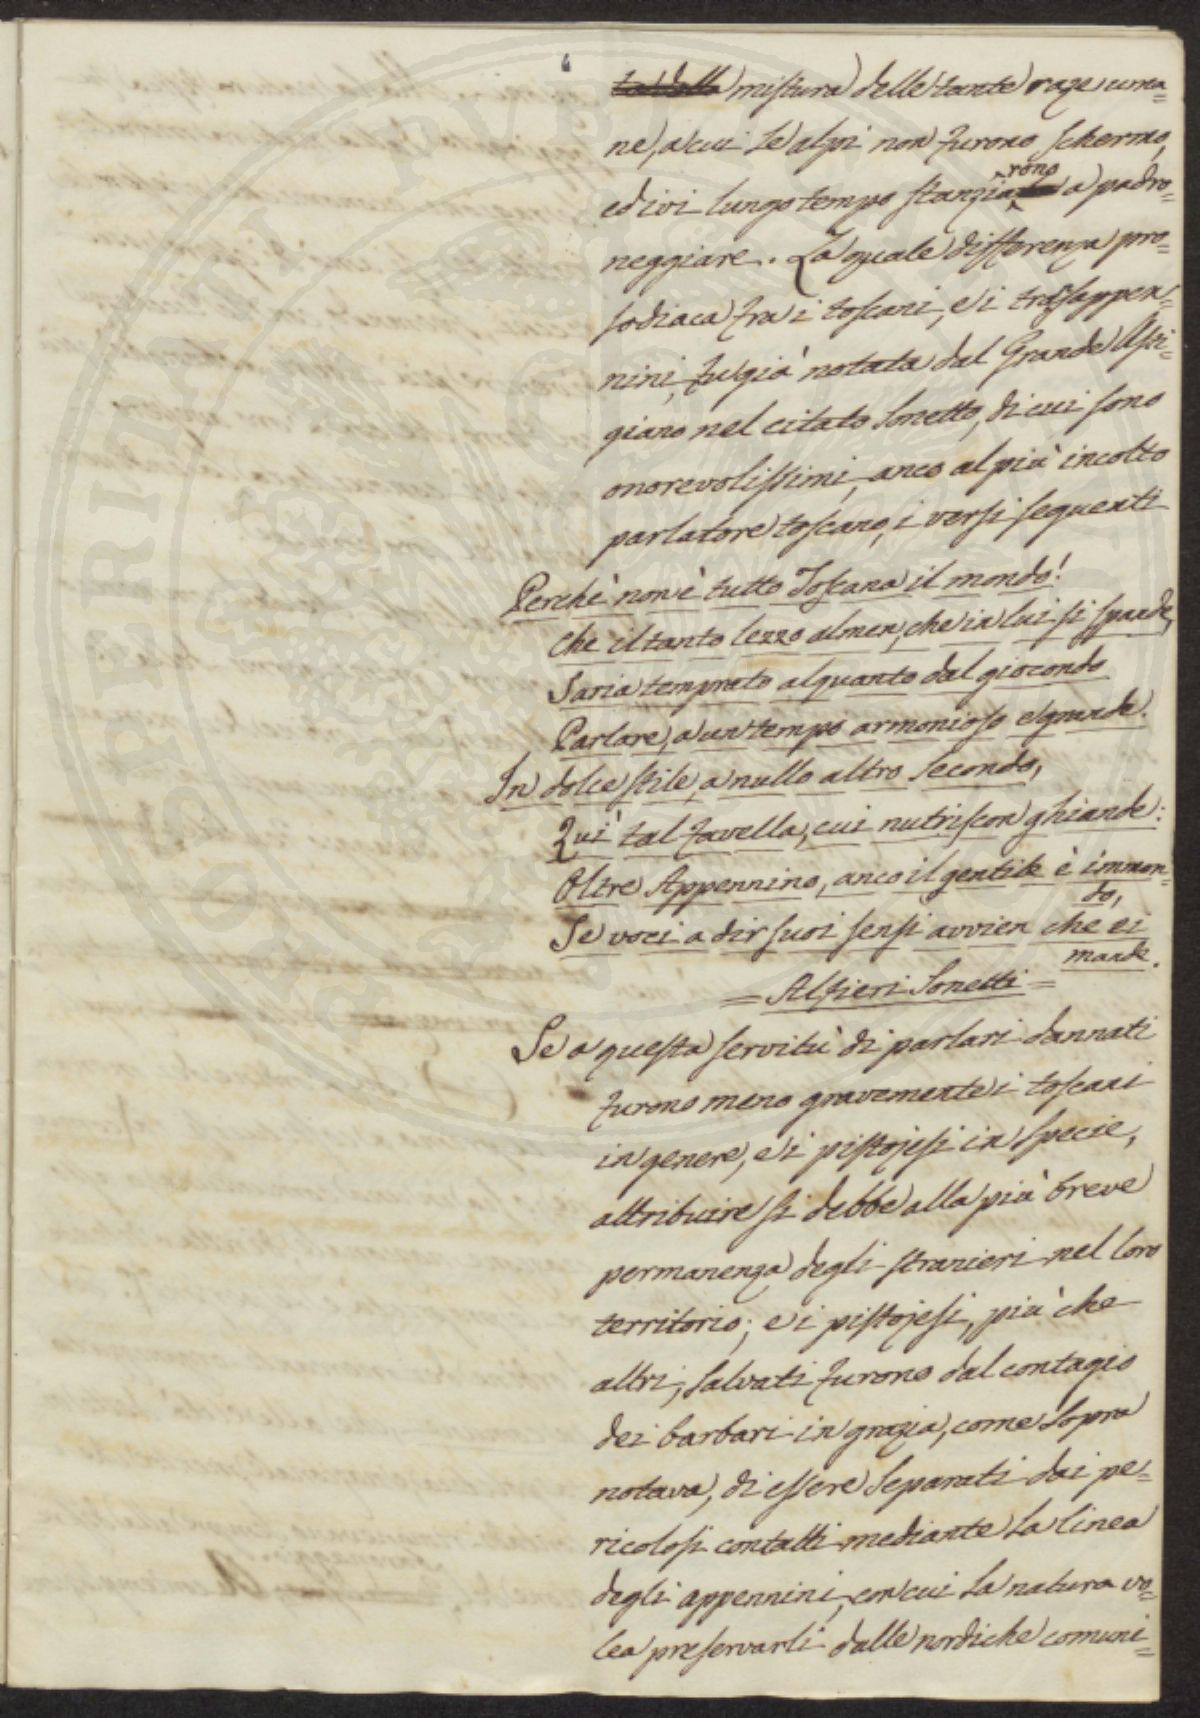 ta della mistura delle tante raze uma=
ne, a cui le alpi non furono schermo,
ed ivi lungo tempo stanziarono a padro=
neggiare. La quale differenza pro=
sodiaca fra i toscani, e i trasappen=
nini, fu già notata dal Grande Asti=
giano nel citato Sonetto, di cui sono
onorevolissimi, anco al più incolto
parlatore toscano, i versi seguenti
Perchè non è tutto Toscana il mondo!
Che il tanto lezzo almen, che in lui si spande,
Saria temprato alquanto dal giocondo
Parlare, a un tempo armonioso e grande.
In dolce stile, a nullo altro secondo,
Quì tal favella, cui nutriscon ghiande:
Oltre Appennino, anco il gentile è immon=
do,
Se voci a dir suoi sensi avvien che ei
mande.
= Alfieri Sonetti =
Se a questa servitù di parlari dannati
furono meno gravemente i toscani
in genere, e i pistojesi in specie,
attribuire si debbe alla più breve
permanenza degli stranieri nel loro
territorio; e i pistojesi, più che
altri, salvati furono dal contagio
dei barbari in grazia, come sopra
notava, di essere separati dai pe=
ricolosi contatti mediante la linea
degli appennini, con cui la natura vo=
lea preservarli dalle nordiche comuni=